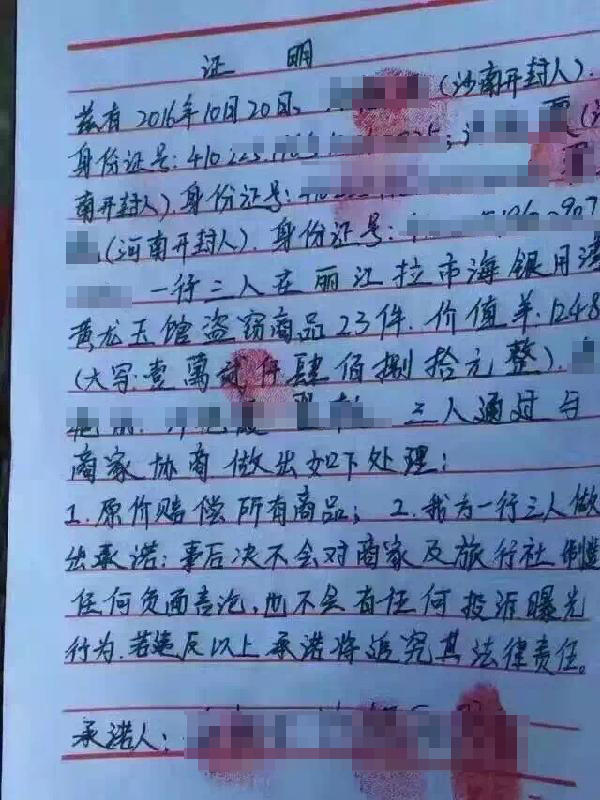 证 明
兹有2016年10月20日, (沙南开封人).
身份证号: 410223
南开封人), 身份证号:
(河南开封人), 身份证号:
一行三人在丽江拉市海银月湾
黄龙玉馆盗窃商品23件. 价值羊: 1248
(大写: 壹萬贰仟肆佰捌拾元整).
三人通过与
商家协商做出如下处理:
1. 原价赔偿所有商品; 2. 我方一行三人做
出承诺: 事后决不会对商家及旅行社制造
任何负面言论, 也不会有任何投诉曝光
行为. 若违反以上承诺将追究其法律责任。
承诺人: